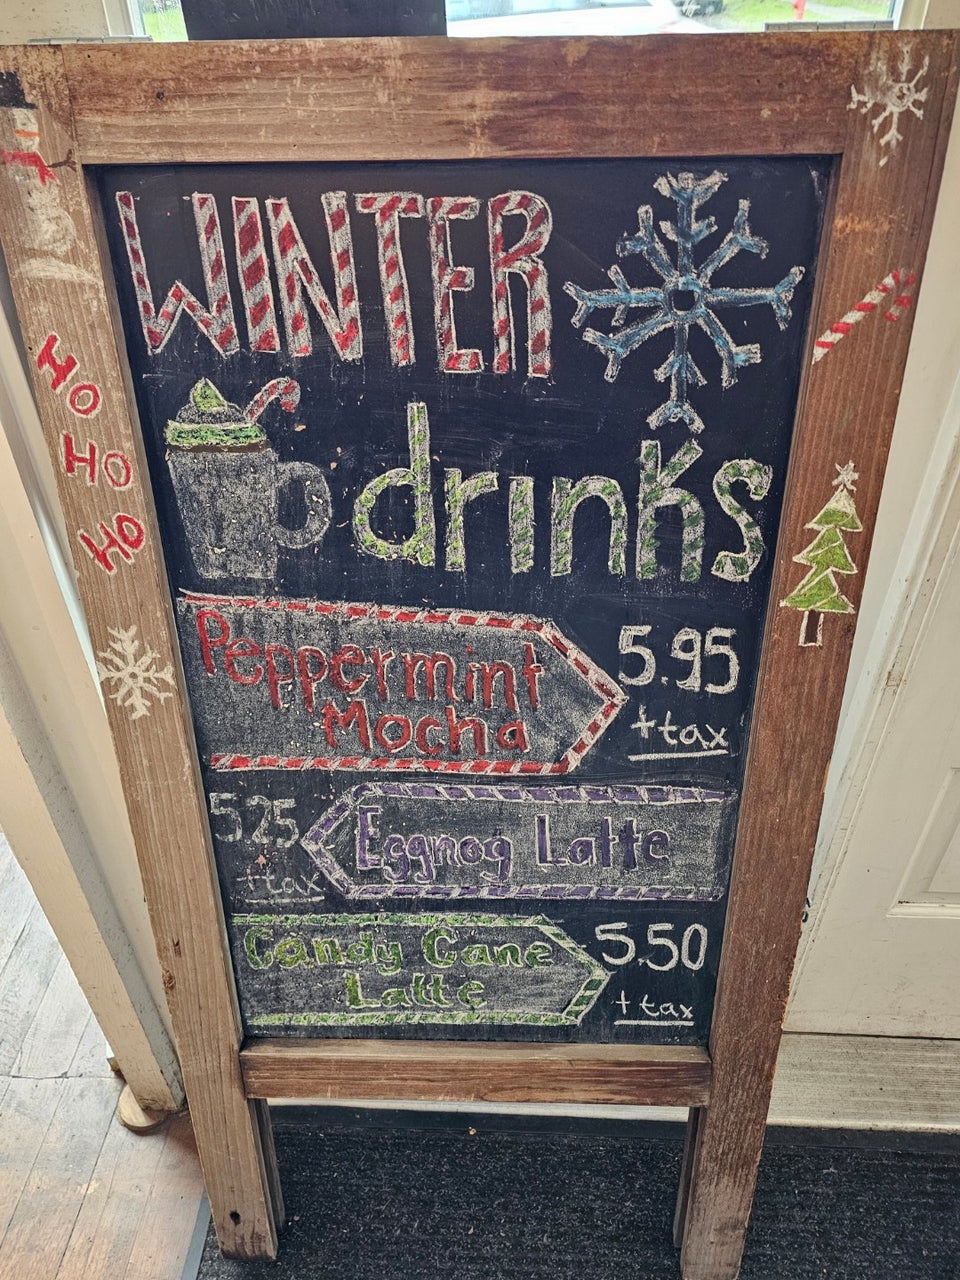 WINTER
drinks
HO
HO
HO
Peppermint
Mocha
5.95
+ tax
5.25
+ tax
Eggnog Latte
Candy Cane
Latte
5.50
+ tax